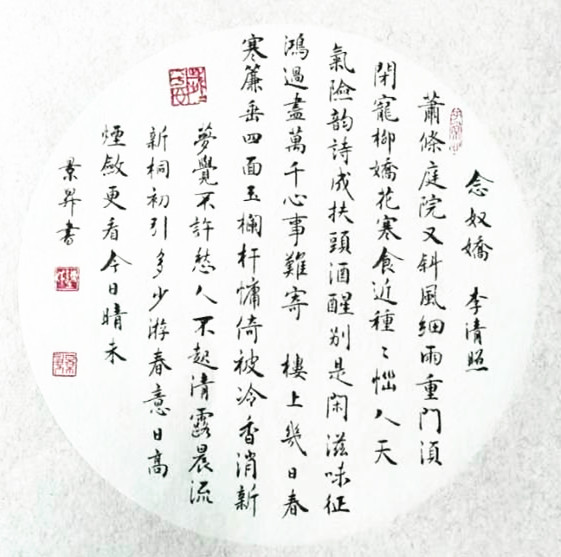 念奴嬌 李清照
蕭條庭院又斜風細雨重門須
閉寵柳嬌花寒食近種〻惱人天
氣險韵詩成扶頭酒醒别是闲滋味征
鴻過盡萬千心事難寄 樓上幾日春
寒簾垂四面玉欄杆慵倚被冷香消新
夢覺不許愁人不起清露晨流
新桐初引多少游春意日高
煙斂更看今日晴未
景昇書